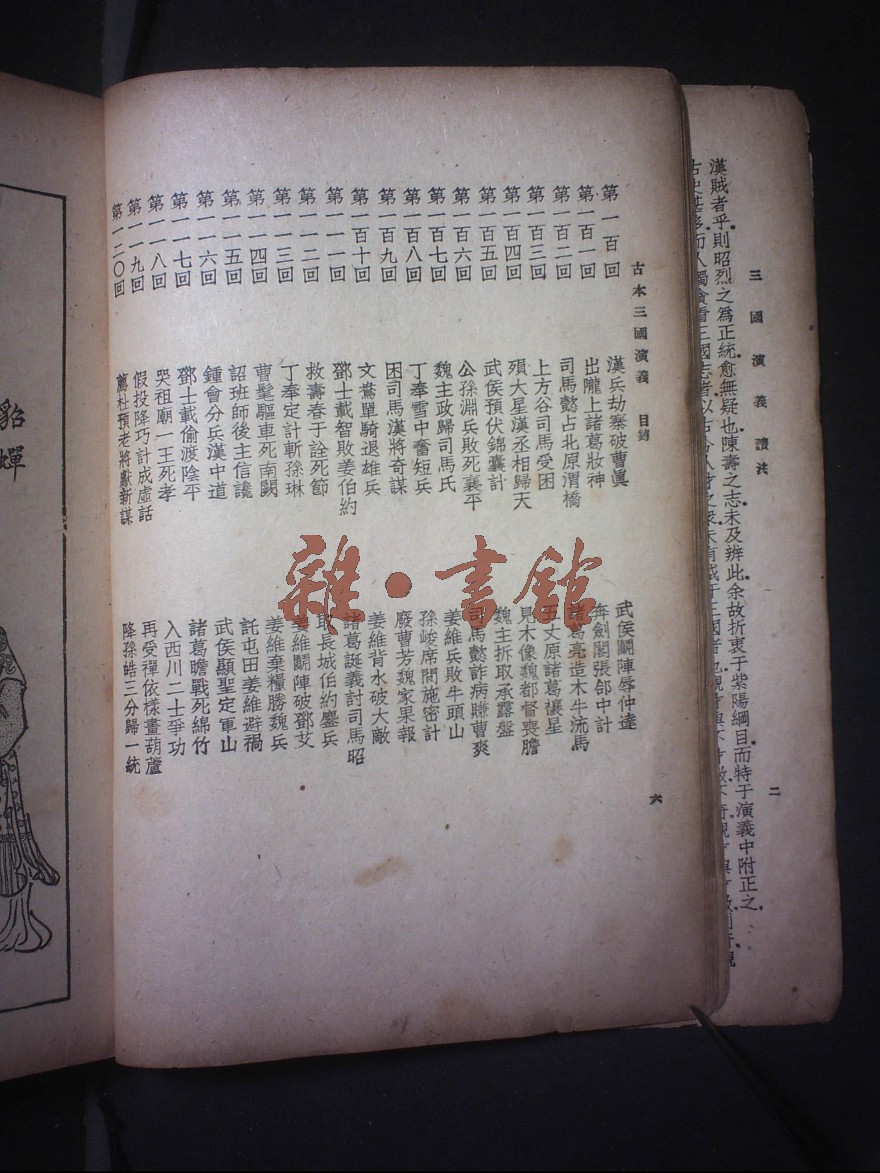 三國演義讀法 二
漢賊者乎.則昭烈之為正統愈無疑也.陳壽之志未及辨此.余故折衷于紫陽綱目.而特于演義中附正之.
古本三國演義 目錄 六
第一百回 漢兵劫寨破曹眞 武侯鬭陣辱仲達
第一百一回 出隴上諸葛妝神 奔劍閣張郃中計
第一百二回 司馬懿占北原渭橋 諸葛亮造木牛流馬
第一百三回 上方谷司馬受困 五丈原諸葛禳星
第一百四回 殞大星漢丞相歸天 見木像魏都督喪膽
第一百五回 武侯預伏錦囊計 魏主折取承露盤
第一百六回 公孫淵兵敗死襄平 司馬懿詐病賺曹爽
第一百七回 魏主政歸司馬氏 姜維兵敗牛頭山
第一百八回 丁奉雪中奮短兵 孫峻席間施密計
第一百九回 困司馬漢將奇謀 廢曹芳魏家果報
第一百十回 文鴦單騎退雄兵 姜維背水破大敵
第一一一回 鄧士載智敗姜伯約 諸葛誕義討司馬昭
第一一二回 救壽春于詮死節 取長城伯約鏖兵
第一一三回 丁奉定計斬孫琳 姜維鬭陣破鄧艾
第一一四回 曹髦驅車死南闕 姜維棄糧勝魏兵
第一一五回 詔班師後主信讒 託屯田姜維避禍
第一一六回 鍾會分兵漢中道 武侯顯聖定軍山
第一一七回 鄧士載偷渡陰平 諸葛瞻戰死綿竹
第一一八回 哭祖廟一王死孝 入西川二士爭功
第一一九回 假投降巧計成虛話 再受禪依樣畫葫蘆
第一二〇回 薦杜預老將獻新謀 降孫皓三分歸一統
雜·書館
貂蟬